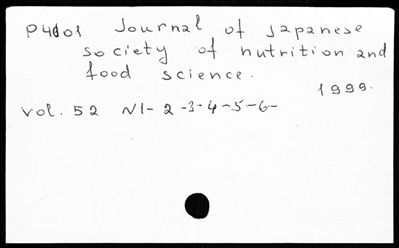 P4801 Journal of Japanese
society of nutrition and
food science.
1999.
vol. 52 N1-2-3-4-5-6-